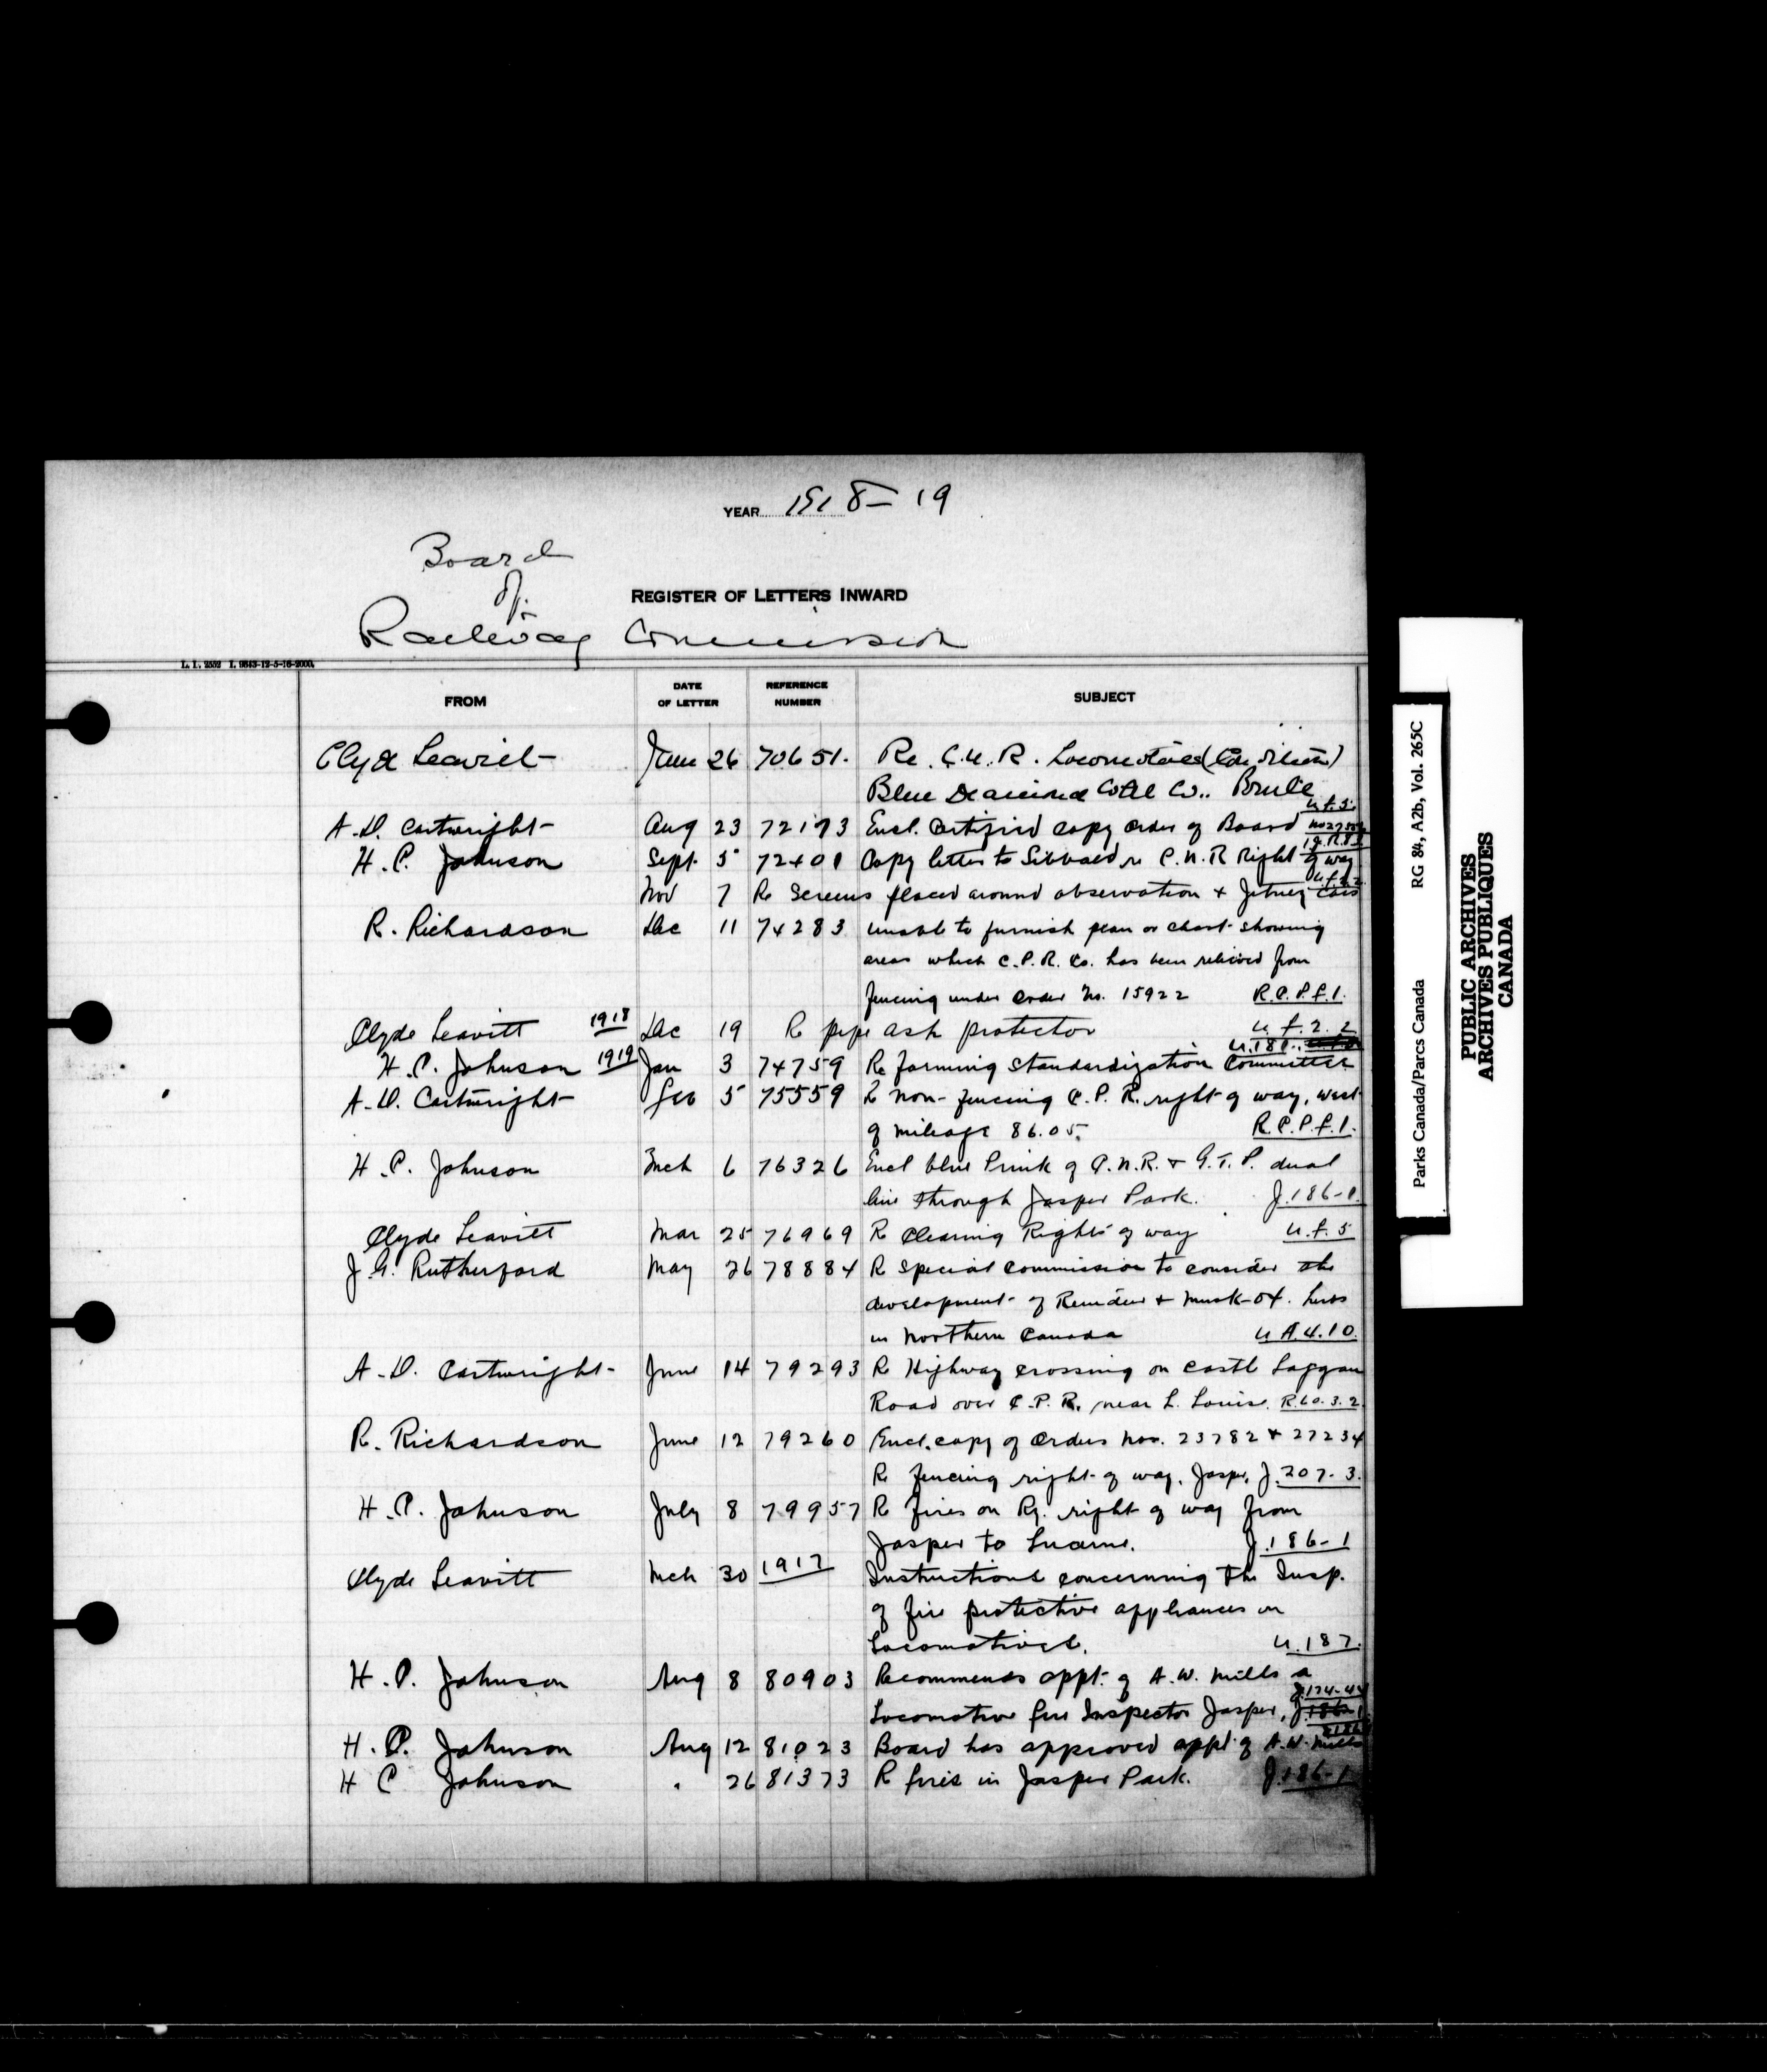 YEAR 1918-19
Board
of
REGISTER OF LETTERS INWARD
Railway Commission
L. I. 2552 I. 9843-12-5-16-2000.
FROM DATE OF LETTER REFERENCE NUMBER SUBJECT
Clyde Leavitt June 26 70651. Re. C.N.R. Locomotives (Condition)
Blue Diamond Coal Co.. Brule
U.f.5.
A.D. Cartwright Aug 23 72193 Encl. Certified copy order of Board
H.C. Johnson Sept. 5 72401 Copy letter to Sibbald re C.N.R Right of way
U.f.2.2.
Nov 7 Re Screens placed around observation + Jitney Cars
R. Richardson Dec 11 74283 Unable to furnish plan or chart showing
areas which C.P.R. Co. has been relieved from
fencing under Order No. 15922 R.C.P.f.1.
Clyde Leavitt 1918 Dec 19 R pipe ash protector U.f.2.2
U.181.
H.C. Johnson 1919 Jan 3 74759 Re forming Standardization Committee
A.D. Cartwright Feb 5 75559 R non-fencing C.P.R. right of way, west
of mileage 86.05. R.C.P.f.1.
H.C. Johnson Mch 6 76326 Encl blue Print of C.N.R. + G.T.P. dual
line through Jasper Park. J.186-1.
Clyde Leavitt Mar 25 76969 R Clearing Rights of way U.f.5
J.G. Rutherford May 26 78884 R Special Commission to consider the
development of Reindeer + Musk-ox herds
in Northern Canada U.A.4.10.
A.D. Cartwright June 14 79293 R Highway crossing on Castle Laggan
Road over C.P.R. near L. Louise. R.60.3.2
R. Richardson June 12 79260 Encl. copy of Orders Nos. 23782 + 27234
R fencing right of way, Jasper, J.207-3.
H.C. Johnson July 8 79957 R fires on Ry. right of way from
Jasper to Lucerne. J.186-1
Clyde Leavitt Mch 30 1917 Instructions concerning the Insp.
of fire protective appliances on
Locomotives. U.187.
H.C. Johnson Aug 8 80903 Recommends appt. of A.W. Mills a
J.174-44
Locomotive fire Inspector Jasper, J.186-1
H.C. Johnson Aug 12 81023 Board has approved appt. of A.W. Mills
H C Johnson " 26 81373 R fires in Jasper Park. J.186-1
Parks Canada/Parcs Canada RG 84, A2b, Vol. 265C
PUBLIC ARCHIVES
ARCHIVES PUBLIQUES
CANADA